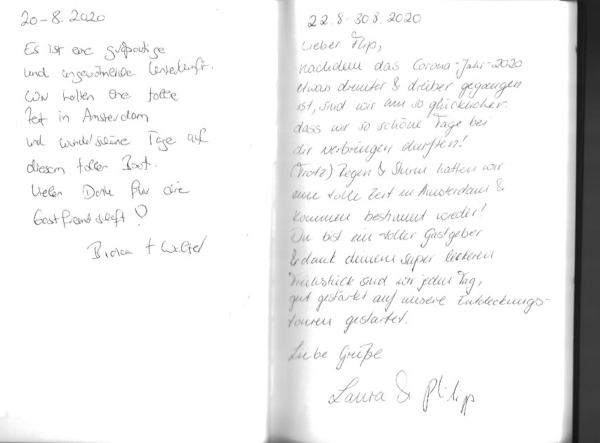 20-8.2020
Es ist eine großartige
und ungewöhnliche Unterkunft.
Wir hatten eine tolle
Zeit in Amsterdam
und wunderschöne Tage auf
diesem tollen Boot.
Vielen Dank für die
Gastfreundschaft ♡
+
22.8-30.8.2020
Lieber Flip,
nachdem das Corona-Jahr-2020
etwas drunter & drüber gegangen
ist, sind wir um so glücklicher
dass wir so schöne Tage bei
dir verbringen durften!
(Trotz) Regen & Sturm hatten wir
eine tolle Zeit in Amsterdam &
kommen bestimmt wieder!
Du bist ein toller Gastgeber
& dank deinem super leckeren
Frühstück sind wir jeden Tag,
gut gestärkt auf unsere Entdeckungs-
touren gestartet.
Liebe Grüße
Laura & Philipp